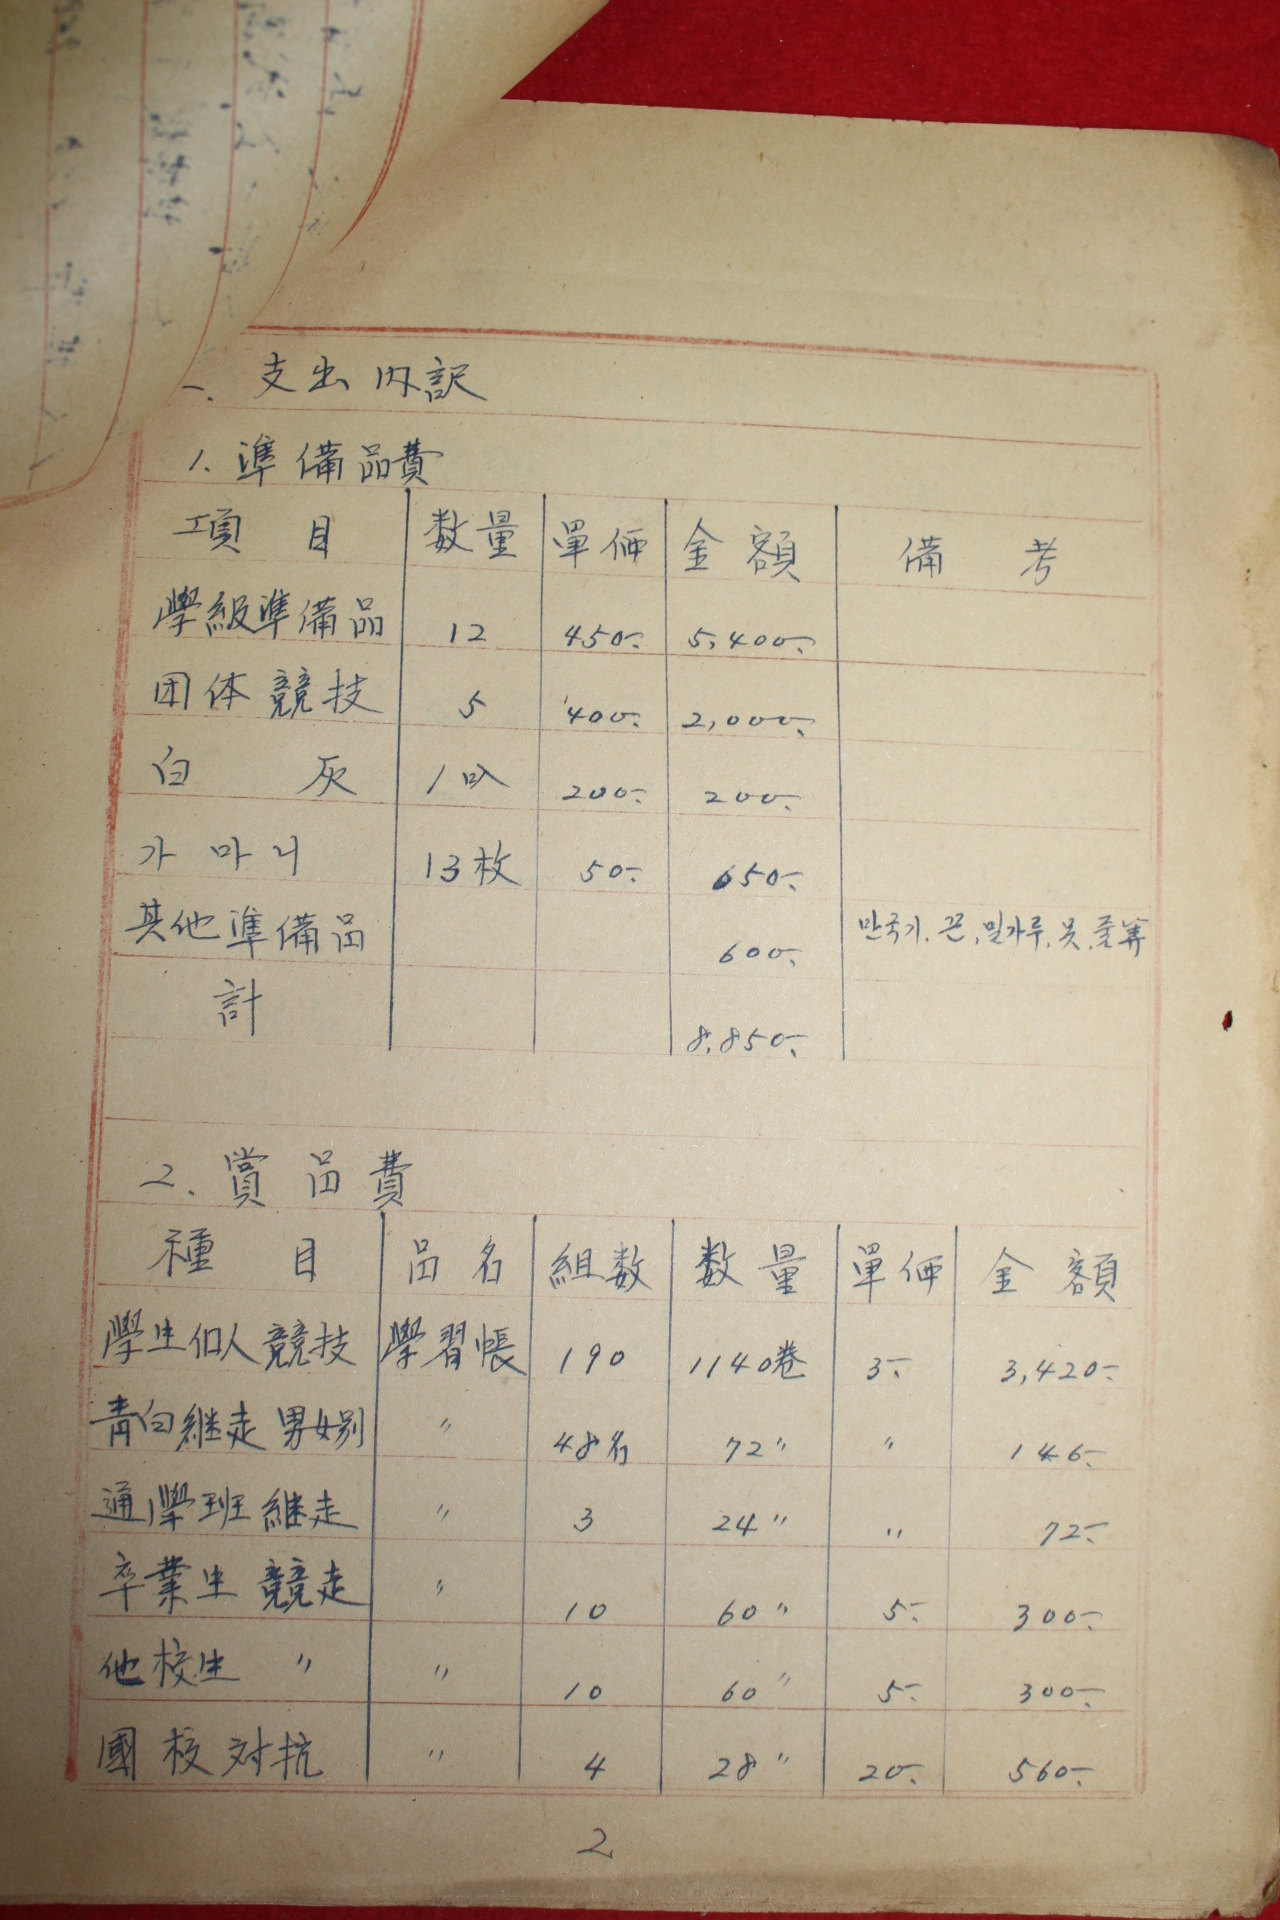 一. 支出内訳
1. 準備品費
項目 数量 單価 金額 備考
學級準備品 12 450- 5,400-
団体競技 5 400- 2,000-
白灰 1叺 200- 200-
가마니 13枚 50- 650-
其他準備品 600- 만국기, 끈, 밀가루, 못, 줄算
計 8,850-
2. 賞品費
種目 品名 組数 数量 單価 金額
學生個人競技 學習帳 190 1140巻 3- 3,420-
靑白継走 男女別 〃 48名 72〃 〃 146-
通學班継走 〃 3 24〃 〃 72-
卒業生競走 〃 10 60〃 5- 300-
他校生 〃 〃 10 60〃 5- 300-
國校対抗 〃 4 28〃 20- 560-
2